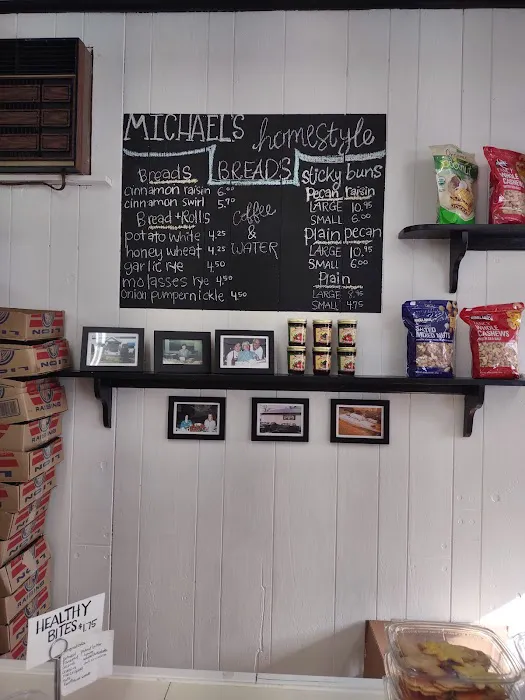 MICHAEL'S homestyle
BREADS
Breads
cinnamon raisin 6.00
cinnamon swirl 5.70
Bread + Rolls
potato white 4.25
honey wheat 4.25
garlic rye 4.50
molasses rye 4.50
onion pumpernickle 4.50
Coffee
&
WATER
sticky buns
Pecan raisin
LARGE 10.95
SMALL 6.00
plain pecan
LARGE 10.95
SMALL 6.00
Plain
LARGE 8.95
SMALL 4.75
WHOLE
CASHEWS
SALTED
MIXED NUTS
WHOLE
CASHEWS
RAISINS
HEALTHY
BITES $1.75